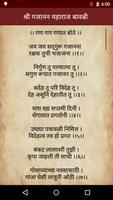 6:00
श्री गजानन महाराज बावन्नी
।। गण गण गणात बोते ।।
जय जय सद्गुरु गजानना
रक्षक तुची भक्तजना ।।१।।
निर्गुण तू परमात्मा तू ।
सगुण रूपात गजानन तू ।।२।।
सदेह तू परि विदेह तू ।
देह असूनि देहातीत तू ।।३।।
माघ वद्य सप्तमी दिनी ।
शेगांवात प्रगटोनी ।।४।।
उष्ट्या पत्रावळी निमित्त ।
विदेहत्व तव हो प्रगट ।।५।।
बंकट लालावरी तुझी ।
कृपा जाहली ती साची ।।६।।
गांजा घेसी लावुनी ओठी ।।७।।